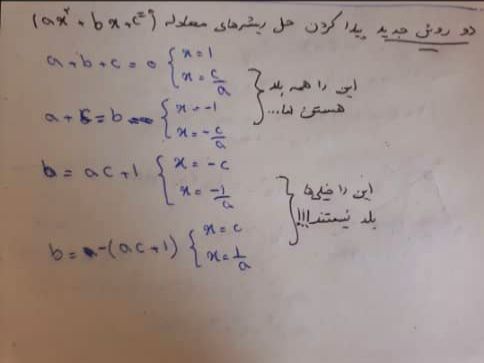 دو روش جدید پیدا کردن حل ریشه‌های معادله (ax²+bx+c=0)
a+b+c=0 { x=1
x=c/a
این را همه بلد
هستن اما...
a+c=b { x=-1
x=-c/a
b=ac+1 { x=-c
x=-1/a
این را خیلی‌ها
بلد نیستند!!!
b=-(ac+1) { x=c
x=1/a